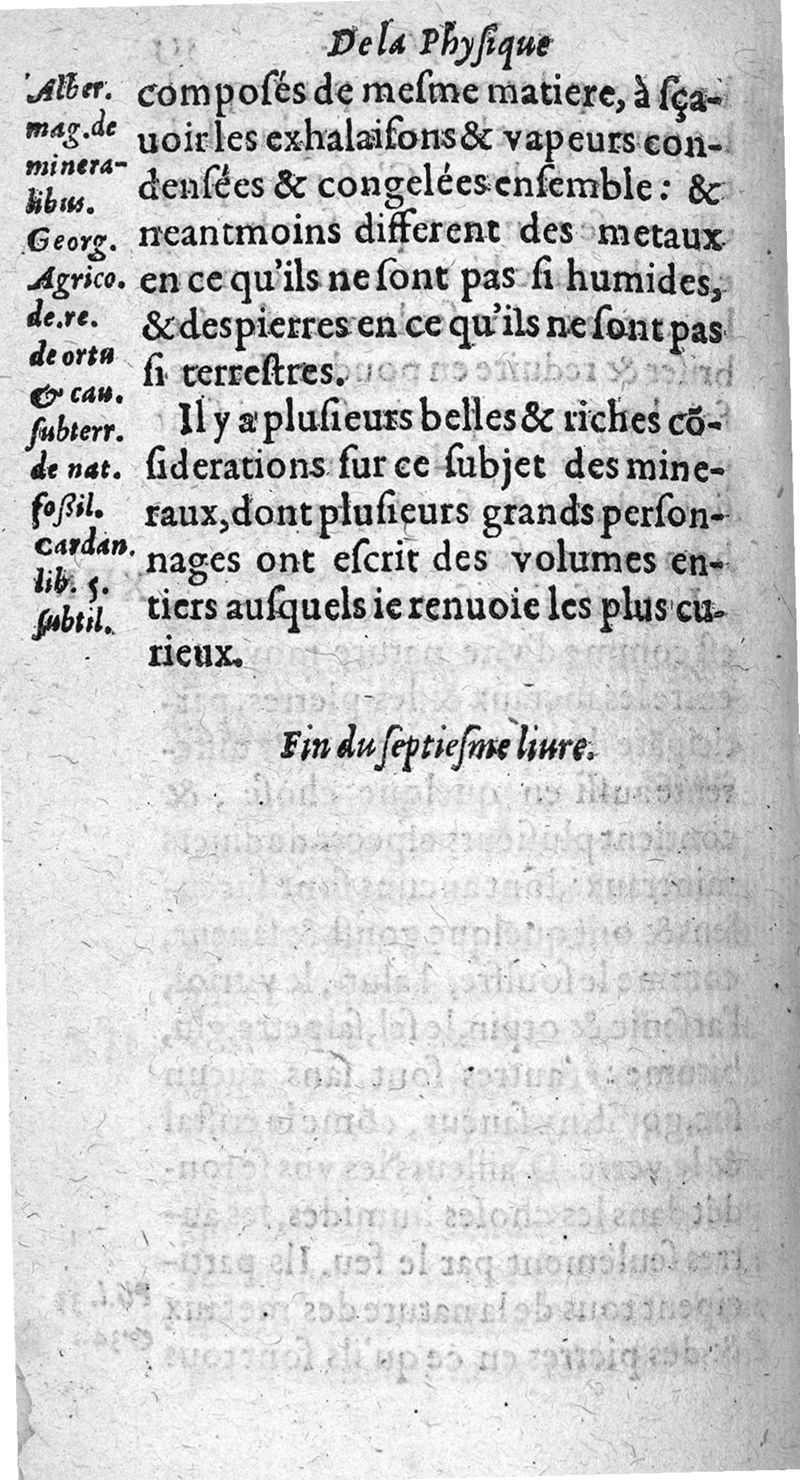 De la Phyſique
Alber.
mag. de
minera-
libus.
Georg.
Agrico.
de. re.
de ortu
& cau.
ſubterr.
de nat.
foßil.
Cardan.
lib. 5.
ſubtil.
compoſés de meſme matiere, à ſça-
uoir les exhalaiſons & vapeurs con-
denſées & congelées enſemble: &
neantmoins different des metaux
en ce qu'ils ne ſont pas ſi humides,
& des pierres en ce qu'ils ne ſont pas
ſi terreſtres.
Il y a pluſieurs belles & riches cõ-
ſiderations ſur ce ſubjet des mine-
raux, dont pluſieurs grands perſon-
nages ont eſcrit des volumes en-
tiers auſquels ie renuoie les plus cu-
rieux.
Fin du ſeptieſme liure.